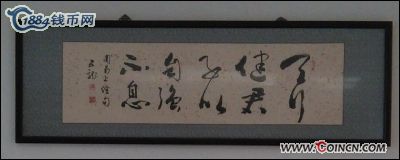 1884钱币网
天行
健君
子以
自強
不息
周易上經句
www.COINCN.com